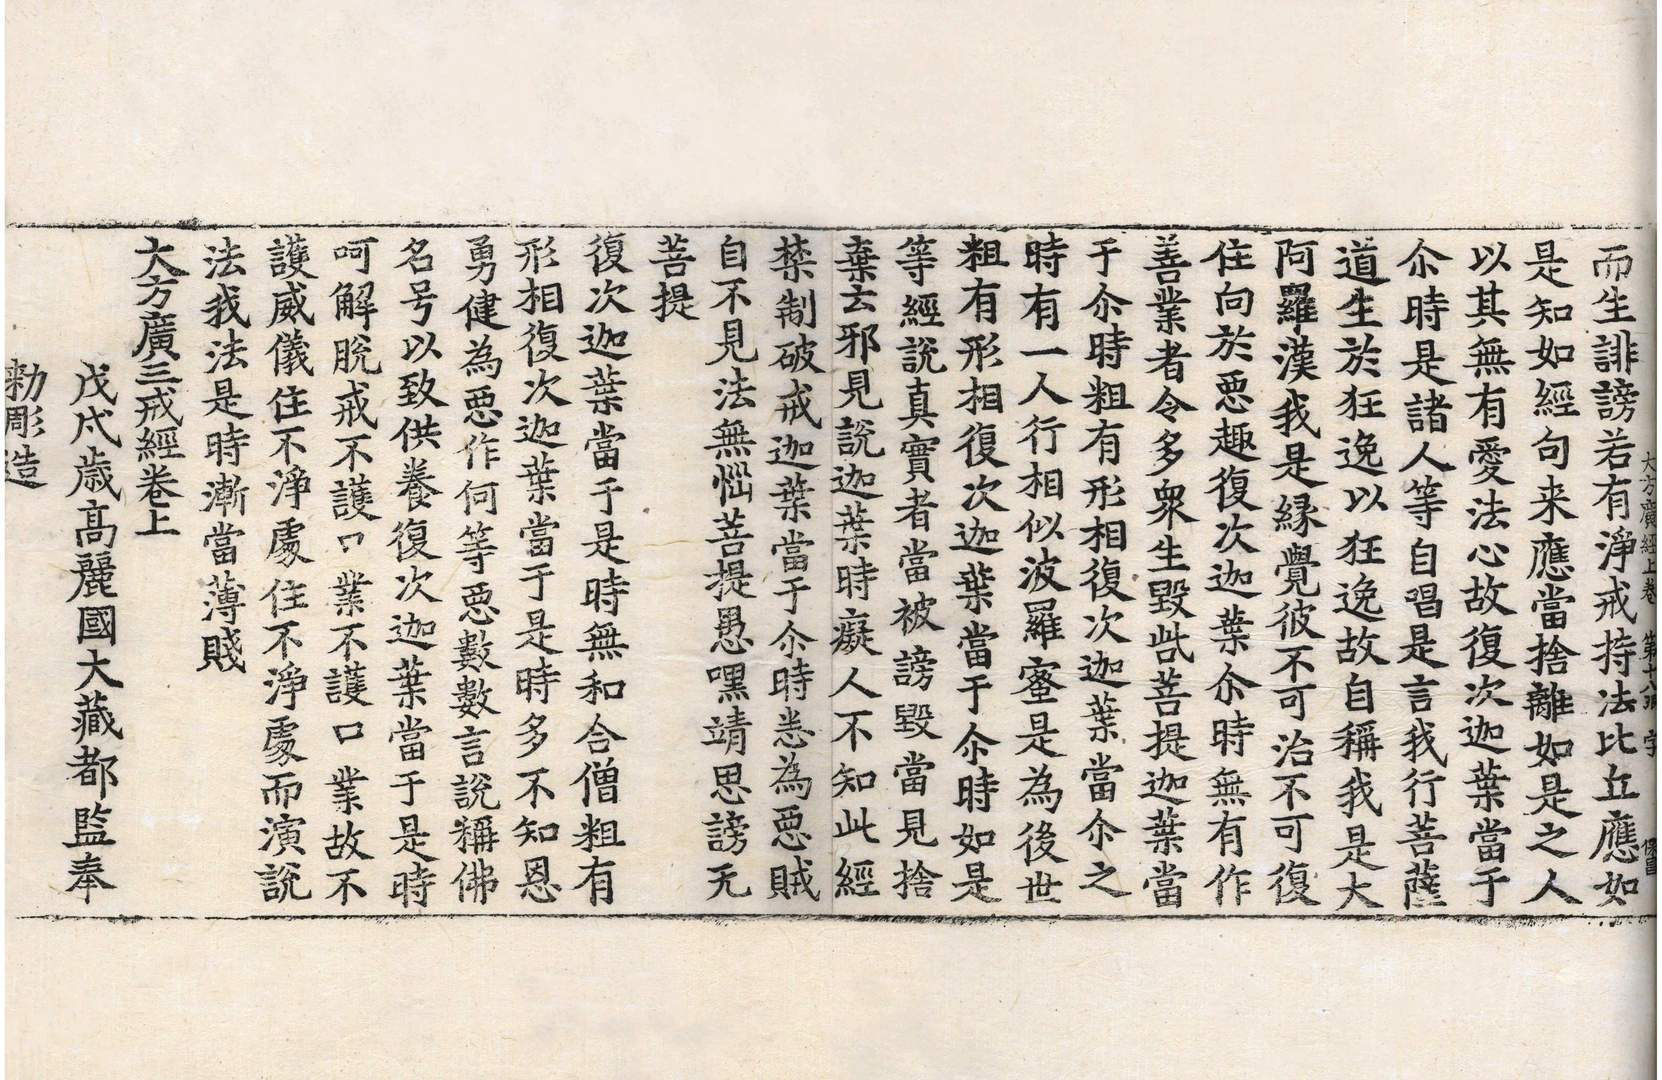 大方廣經上卷 第十八張 字
而生誹謗若有淨戒持法比丘應如
是知如經句来應當捨離如是之人
以其無有愛法心故復次迦葉當于
尒時是諸人等自唱是言我行菩薩
道生於狂逸以狂逸故自稱我是大
阿羅漢我是縁覺彼不可治不可復
住向於惡趣復次迦葉尒時無有作
善業者令多衆生毀呰菩提迦葉當
于尒時粗有形相復次迦葉當尒之
時有一人行相似波羅蜜是為後世
粗有形相復次迦葉當于尒時如是
等經說真實者當被謗毀當見捨
棄云邪見說迦葉時癡人不知此經
禁制破戒迦葉當于尒時恙為惡賊
自不見法無惱菩提愚嘿靖思謗无
菩提
復次迦葉當于是時無和合僧粗有
形相復次迦葉當于是時多不知恩
勇健為惡作何等惡數數言說稱佛
名号以致供養復次迦葉當于是時
呵解脫戒不護口業不護口業故不
護威儀住不淨處住不淨處而演說
法我法是時漸當薄賤
大方廣三戒經卷上
戊戌歳高麗國大藏都監奉
勑彫造